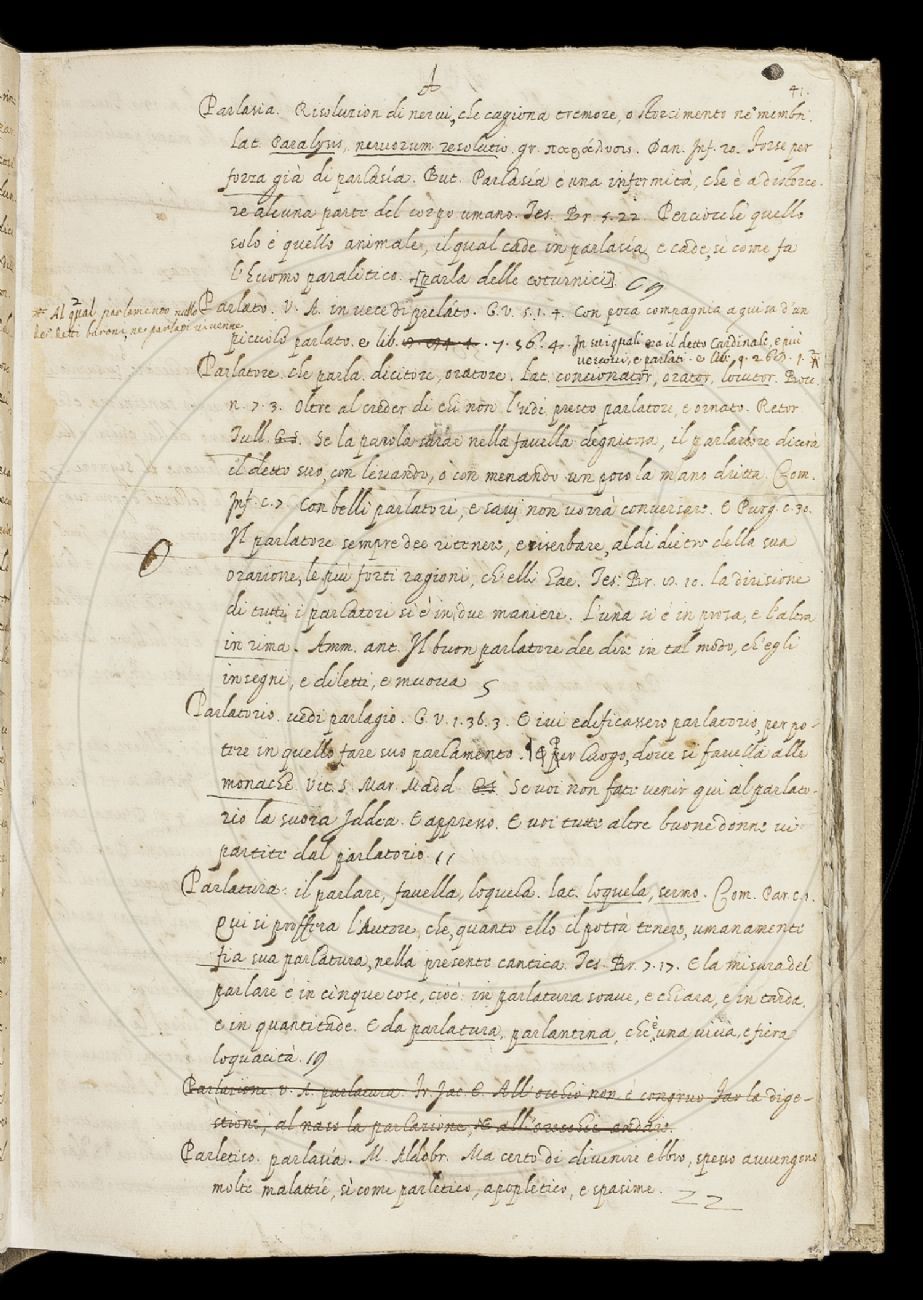 A
41.
Parlasia. Risoluzion di nervi, che cagiona tremore, o storcimento ne' membri.
Lat. Paralysis, nervorum resolutio. gr. παράλυσις. Dan. Inf. 20. Forse per
forza già di parlasía. But. Parlasía è una infermità, che è a distorce-
re alcuna parte del corpo umano. Tes. Br. 5. 22. Perciocchè quello
solo è quello animale, il qual cade in parlasía e cade, sì come fa
l'Uomo paralitico. [parla delle coturnici]
Al qual parlamento nullo
de' detti baroni, nè parlati vi venne
Parlato. V. A. in vece di prelato. G. V. 5. 1. 4. Con poca compagnia a guisa d'un
piccolo parlato. e lib. 7. 56. 4. In su i quali era il detto Cardinale, e più
vescovi, e parlati. e lib. 9.
Parlatore. che parla. dicitore, oratore. Lat. concionator, orator, locutor. Bocc.
n. 7. 3. Oltre al creder di chi non l'udì presto parlatore, e ornato. Retor.
Tull. Se la parola sarae nella favella degnitosa, il parlatore dicerà
il detto suo, con levando, o con menando un poco la mano dritta. Com.
Inf. c. 7. Con belli parlatori, e savij non vorrà conversare. E Purg. c. 30.
Il parlatore sempre dee ritenere, e riserbare, al di dietro della sua
orazione, le più forti ragioni, ch'elli hae. Tes. Br. 8. 10. la divisione
di tutti i parlatori si è in due maniere. L'una si è in prosa, e l'altra
in rima. Amm. ant. Il buon parlatore dee dire in tal modo, ch'egli
insegni, e diletti, e muova 5
Parlatorio. vedi parlagio. G. V. 1. 36. 3. E ivi edificassero parlatorio, per po-
tere in quello fare suo parlamento. per luogo, dove si favella alle
monache. Vit. S. Mar. Madd. Se voi non fate venir qui al parlato-
rio la suora E appresso. E voi tutte altre buone donne vi
partite dal parlatorio. 11
Parlatura. il parlare, favella, loquela. Lat. loquela, sermo. Com. Par. c. 1.
Qui si proffera l'Autore, che, quanto ello il potrà tenere, umanamente
fia sua parlatura, nella presente cantica. Tes. Br. 7. 17. E la misura del
parlare è in cinque cose, cioè: in parlatura soave, e chiara, e in tarda,
e in quantitade. E da parlatura, parlantina, che è una viva, e fiera
loquacità. 19
Parlazione. V. A. parlatura. Fr. Jac. C. All'occhio non è congruo far la dige-
stione, al naso la parlazione, e all'orecchie andare.
Parletico. parlasía. M. Aldobr. Ma certo di divenire ebbro, spesso avvengono
molte malattíe, sì come parletico, apopletico, e spasime. 22